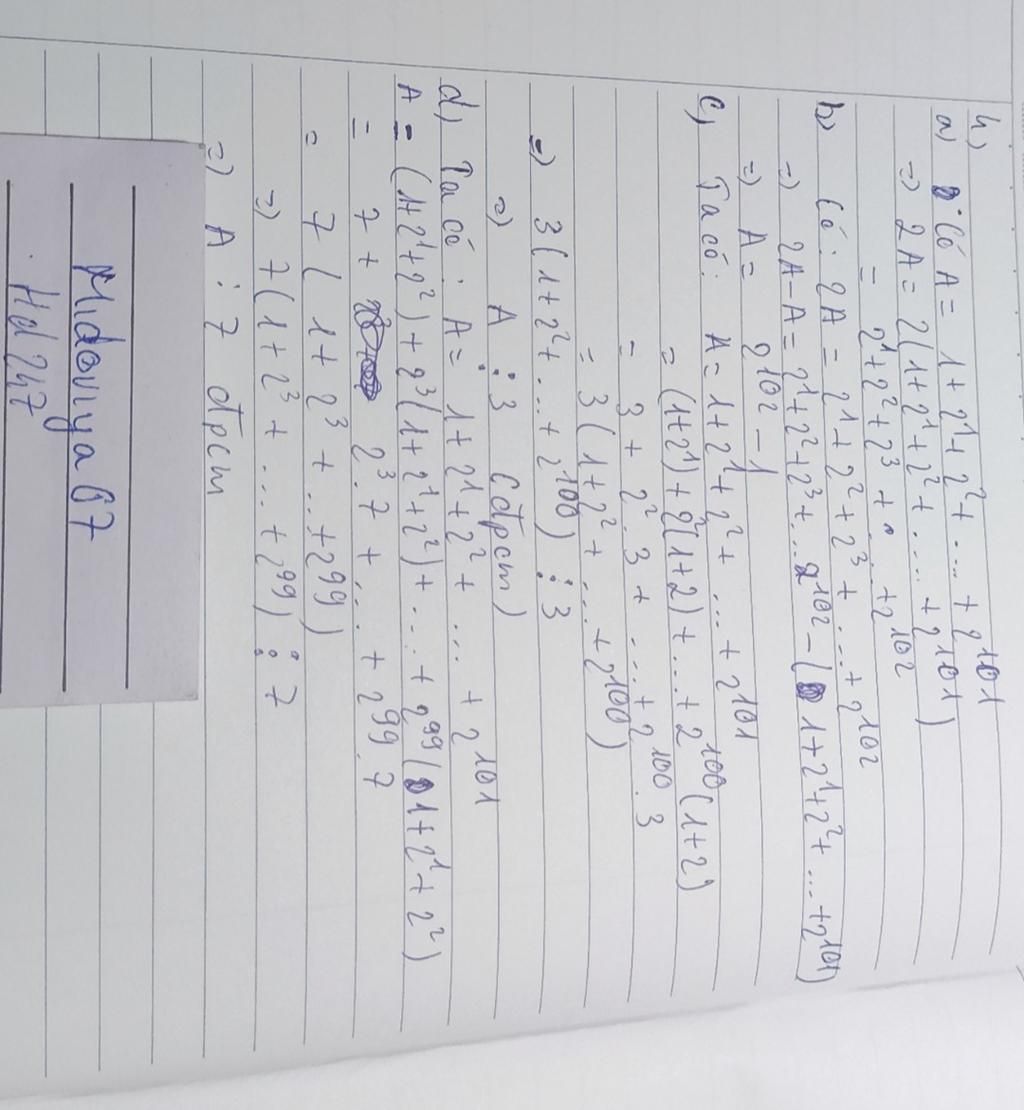 h)
A = 1 + 2¹ + 2² + .... + 2¹⁰¹
a) Có A = 1 + 2¹ + 2² + .... + 2¹⁰¹
=> 2A = 2(1 + 2¹ + 2² + .... + 2¹⁰¹)
= 2¹ + 2² + 2³ + ... + 2¹⁰²
b) Có: 2A = 2¹ + 2² + 2³ + .... + 2¹⁰²
=> 2A - A = 2¹ + 2² + 2³ + ... 2¹⁰² - (1 + 2¹ + 2² + ... + 2¹⁰¹)
=> A = 2¹⁰² - 1
c) Ta có: A = 1 + 2¹ + 2² + .... + 2¹⁰¹
= (1 + 2¹) + 2²(1 + 2) + .... + 2¹⁰⁰(1 + 2)
= 3 + 2².3 + .... + 2¹⁰⁰.3
= 3(1 + 2² + ... + 2¹⁰⁰)
=> 3(1 + 2² + ... + 2¹⁰⁰) ⋮ 3
=> A ⋮ 3 (đpcm)
d) Ta có: A = 1 + 2¹ + 2² + .... + 2¹⁰¹
A = (1 + 2¹ + 2²) + 2³(1 + 2¹ + 2²) + ... + 2⁹⁹(1 + 2¹ + 2²)
= 7 + 2³.7 + .... + 2⁹⁹.7
= 7(1 + 2³ + ... + 2⁹⁹)
=> 7(1 + 2³ + ... + 2⁹⁹) ⋮ 7
=> A ⋮ 7 đpcm
Midoriya67
Hd247